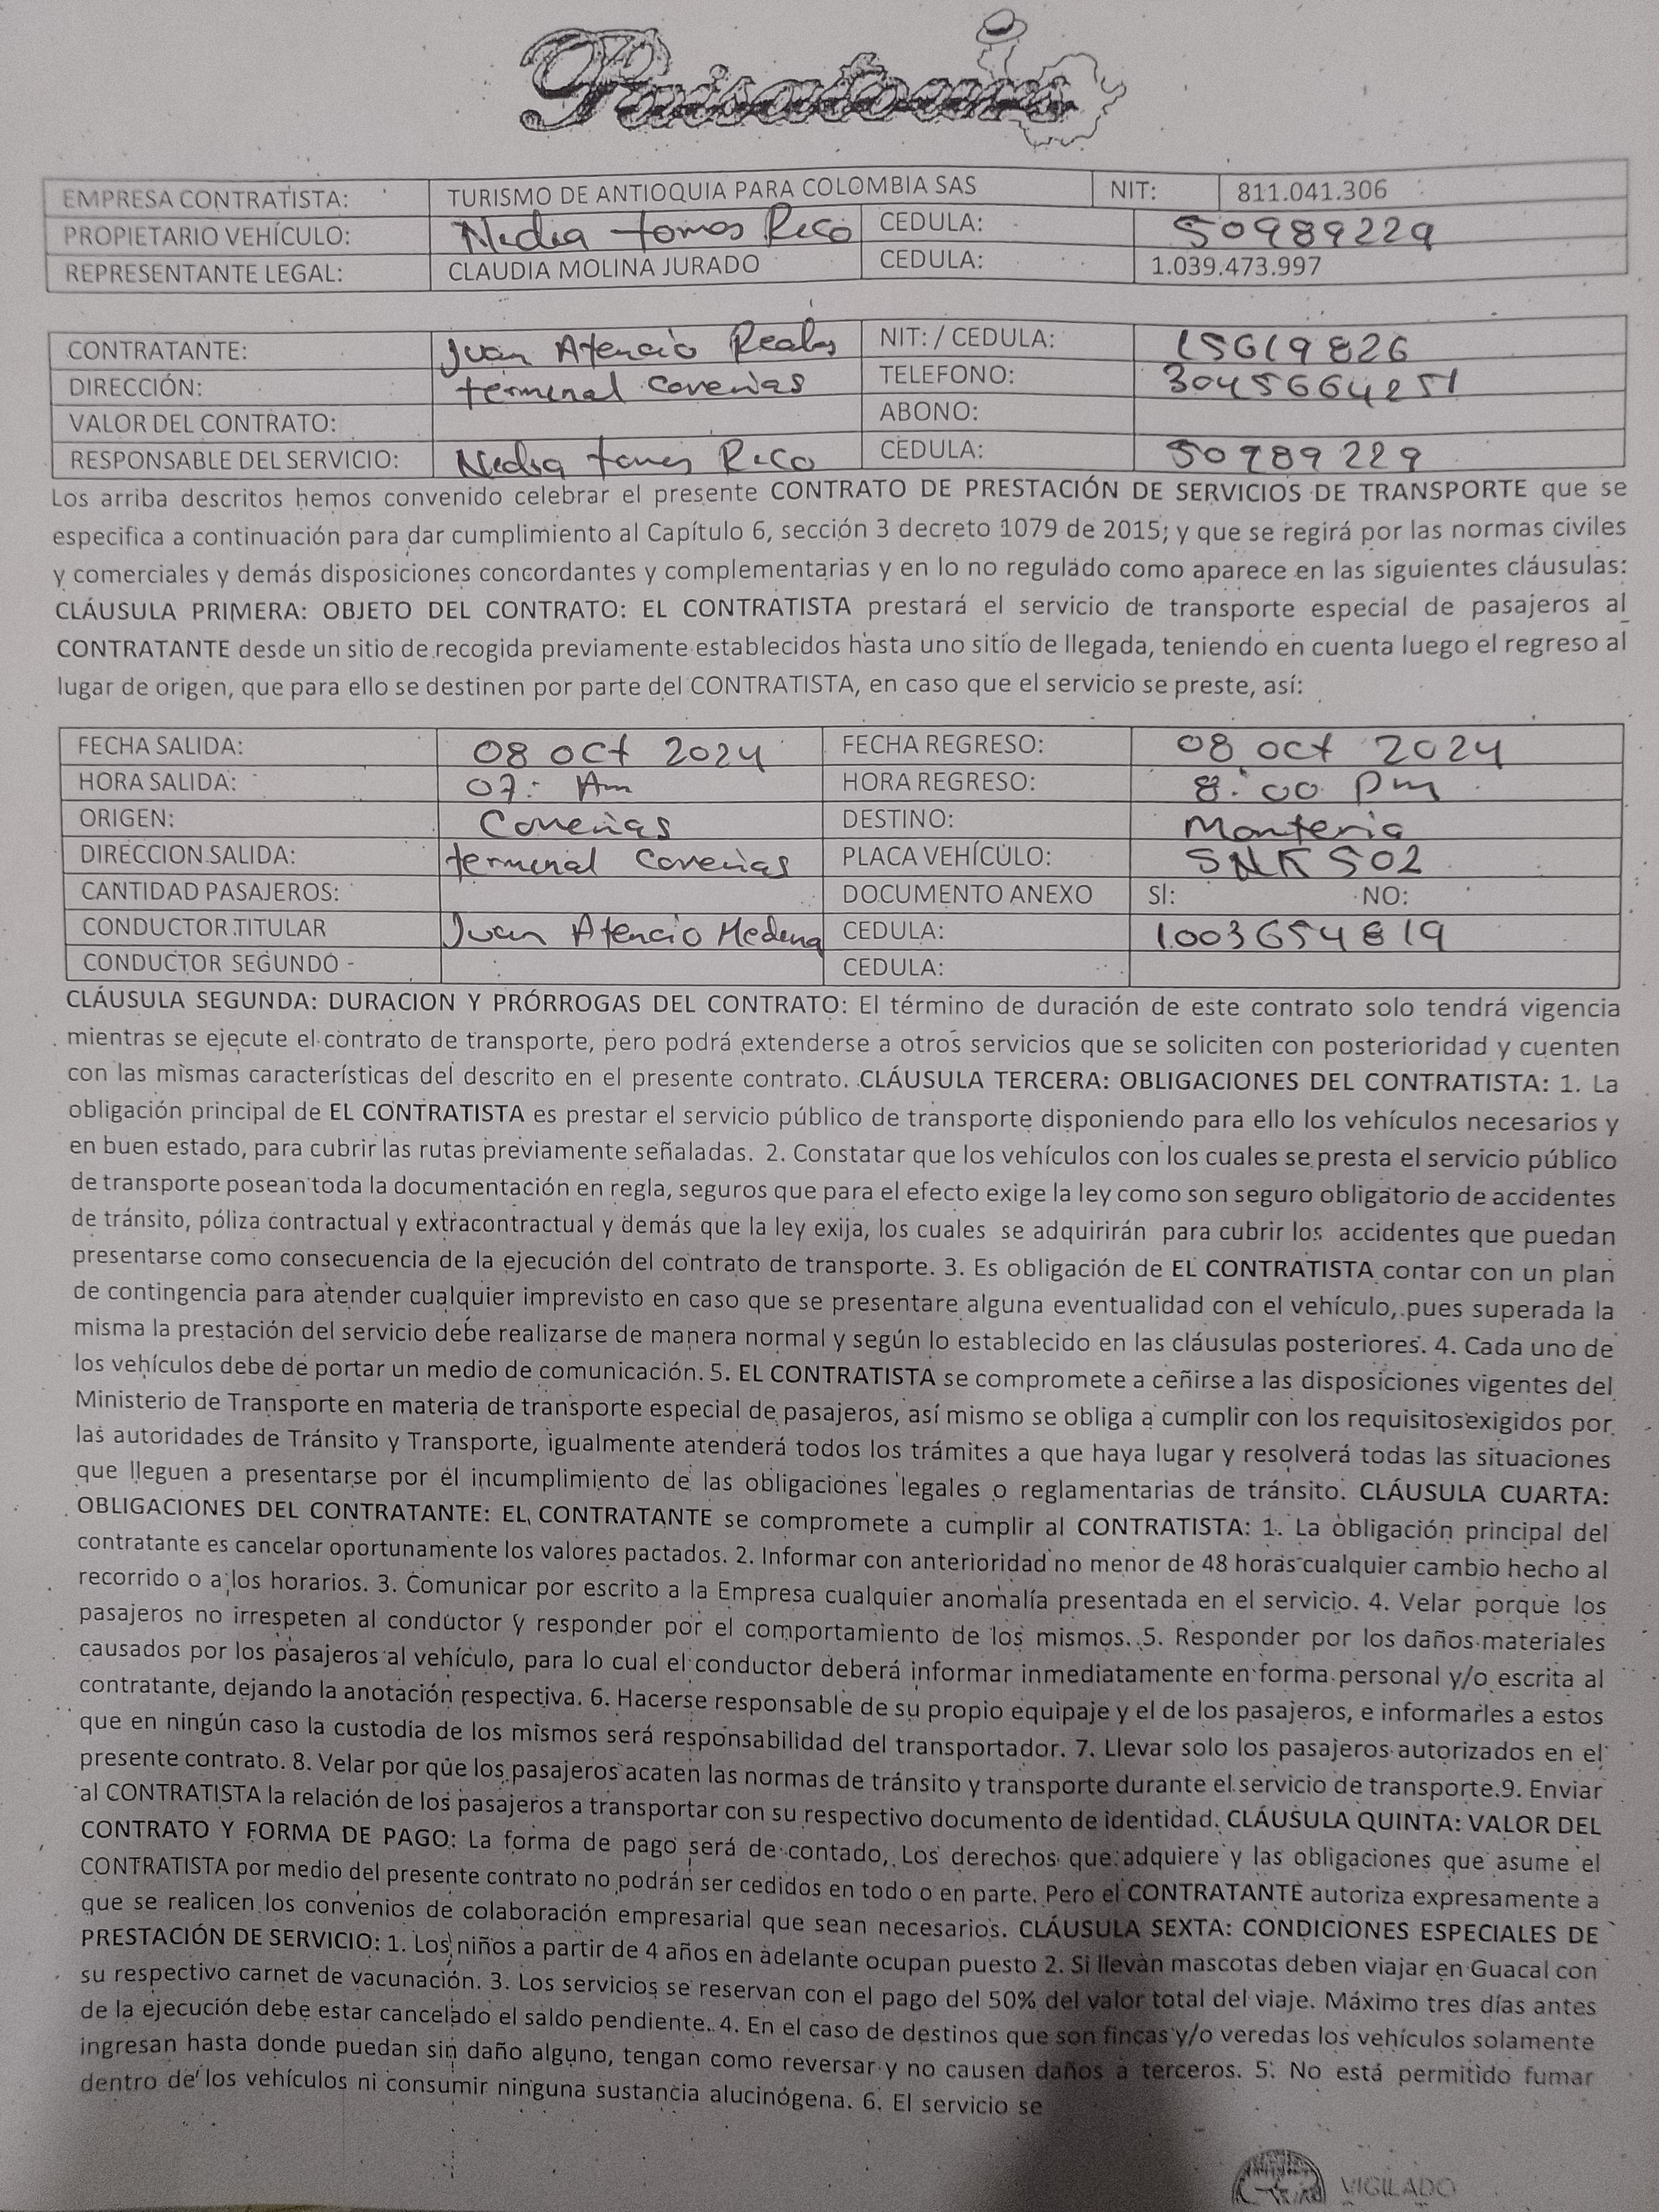 Paisatours
EMPRESA CONTRATISTA: TURISMO DE ANTIOQUIA PARA COLOMBIA SAS NIT: 811.041.306
PROPIETARIO VEHÍCULO: Nedia tomos Rico CEDULA: 50989229
REPRESENTANTE LEGAL: CLAUDIA MOLINA JURADO CEDULA: 1.039.473.997
CONTRATANTE: Juan Atencio Reales NIT: / CEDULA: 15619826
DIRECCIÓN: terminal Coveñas TELEFONO: 30456664251
VALOR DEL CONTRATO: ABONO:
RESPONSABLE DEL SERVICIO: Nedia Rico CEDULA: 50989229
Los arriba descritos hemos convenido celebrar el presente CONTRATO DE PRESTACIÓN DE SERVICIOS DE TRANSPORTE que se
especifica a continuación para dar cumplimiento al Capítulo 6, sección 3 decreto 1079 de 2015; y que se regirá por las normas civiles
y comerciales y demás disposiciones concordantes y complementarias y en lo no regulado como aparece en las siguientes cláusulas:
CLÁUSULA PRIMERA: OBJETO DEL CONTRATO: EL CONTRATISTA prestará el servicio de transporte especial de pasajeros al
CONTRATANTE desde un sitio de recogida previamente establecidos hasta uno sitio de llegada, teniendo en cuenta luego el regreso al
lugar de origen, que para ello se destinen por parte del CONTRATISTA, en caso que el servicio se preste, así:
FECHA SALIDA: 08 oct 2024 FECHA REGRESO: 08 oct 2024
HORA SALIDA: 07: Am HORA REGRESO: 8:00 Pm
ORIGEN: Coveñas DESTINO: Monteria
DIRECCION SALIDA: terminal Coveñas PLACA VEHÍCULO: SNK502
CANTIDAD PASAJEROS: DOCUMENTO ANEXO SÍ: NO:
CONDUCTOR TITULAR Juan Atencio Medina CEDULA: 1003654819
CONDUCTOR SEGUNDO CEDULA:
CLÁUSULA SEGUNDA: DURACION Y PRÓRROGAS DEL CONTRATO: El término de duración de este contrato solo tendrá vigencia
mientras se ejecute el contrato de transporte, pero podrá extenderse a otros servicios que se soliciten con posterioridad y cuenten
con las mismas características del descrito en el presente contrato. CLÁUSULA TERCERA: OBLIGACIONES DEL CONTRATISTA: 1. La
obligación principal de EL CONTRATISTA es prestar el servicio público de transporte disponiendo para ello los vehículos necesarios y
en buen estado, para cubrir las rutas previamente señaladas. 2. Constatar que los vehículos con los cuales se presta el servicio público
de transporte posean toda la documentación en regla, seguros que para el efecto exige la ley como son seguro obligatorio de accidentes
de tránsito, póliza contractual y extracontractual y demás que la ley exija, los cuales se adquirirán para cubrir los accidentes que puedan
presentarse como consecuencia de la ejecución del contrato de transporte. 3. Es obligación de EL CONTRATISTA contar con un plan
de contingencia para atender cualquier imprevisto en caso que se presentare alguna eventualidad con el vehículo, pues superada la
misma la prestación del servicio debe realizarse de manera normal y según lo establecido en las cláusulas posteriores. 4. Cada uno de
los vehículos debe de portar un medio de comunicación. 5. EL CONTRATISTA se compromete a ceñirse a las disposiciones vigentes del
Ministerio de Transporte en materia de transporte especial de pasajeros, así mismo se obliga a cumplir con los requisitos exigidos por
las autoridades de Tránsito y Transporte, igualmente atenderá todos los trámites a que haya lugar y resolverá todas las situaciones
que lleguen a presentarse por el incumplimiento de las obligaciones legales o reglamentarias de tránsito. CLÁUSULA CUARTA:
OBLIGACIONES DEL CONTRATANTE: EL CONTRATANTE se compromete a cumplir al CONTRATISTA: 1. La obligación principal del
contratante es cancelar oportunamente los valores pactados. 2. Informar con anterioridad no menor de 48 horas cualquier cambio hecho al
recorrido o a los horarios. 3. Comunicar por escrito a la Empresa cualquier anomalía presentada en el servicio. 4. Velar porque los
pasajeros no irrespeten al conductor y responder por el comportamiento de los mismos. 5. Responder por los daños materiales
causados por los pasajeros al vehículo, para lo cual el conductor deberá informar inmediatamente en forma personal y/o escrita al
contratante, dejando la anotación respectiva. 6. Hacerse responsable de su propio equipaje y el de los pasajeros, e informarles a estos
que en ningún caso la custodia de los mismos será responsabilidad del transportador. 7. Llevar solo los pasajeros autorizados en el
presente contrato. 8. Velar por que los pasajeros acaten las normas de tránsito y transporte durante el servicio de transporte.9. Enviar
al CONTRATISTA la relación de los pasajeros a transportar con su respectivo documento de identidad. CLÁUSULA QUINTA: VALOR DEL
CONTRATO Y FORMA DE PAGO: La forma de pago será de contado, Los derechos que adquiere y las obligaciones que asume el
CONTRATISTA por medio del presente contrato no podrán ser cedidos en todo o en parte. Pero el CONTRATANTE autoriza expresamente a
que se realicen los convenios de colaboración empresarial que sean necesarios. CLÁUSULA SEXTA: CONDICIONES ESPECIALES DE
PRESTACIÓN DE SERVICIO: 1. Los niños a partir de 4 años en adelante ocupan puesto 2. Si llevan mascotas deben viajar en Guacal con
su respectivo carnet de vacunación. 3. Los servicios se reservan con el pago del 50% del valor total del viaje. Máximo tres días antes
de la ejecución debe estar cancelado el saldo pendiente. 4. En el caso de destinos que son fincas y/o veredas los vehículos solamente
ingresan hasta donde puedan sin daño alguno, tengan como reversar y no causen daños a terceros. 5. No está permitido fumar
dentro de los vehículos ni consumir ninguna sustancia alucinógena. 6. El servicio se
VIGILADO